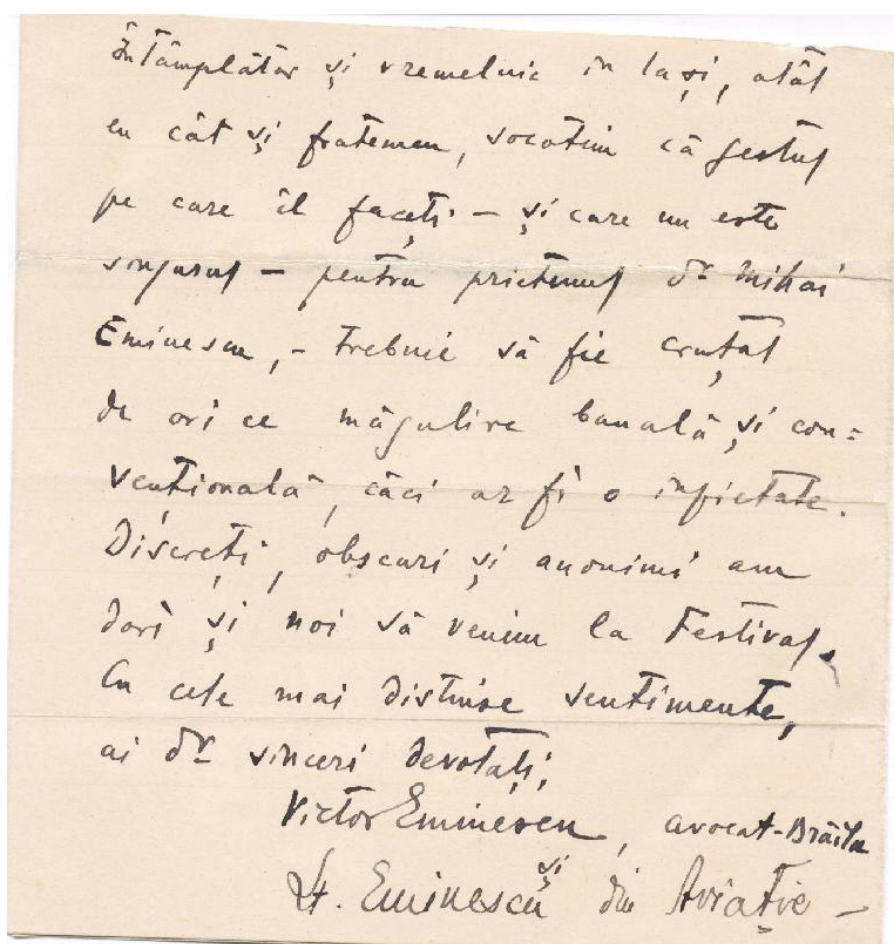 Întâmplător și vremelnic in Iași, atât
eu cât și fratemeu, socotim că gestul
pe care îl faceți – și care nu este
singurul – pentru prietenul dv Mihai
Eminescu, – trebuie să fie cruțat
de ori ce măgulire banală și con=
vențională, căci ar fi o impietate.
Discreți, obscuri și anonimi am
dori și noi să venim la Festival.
Cu cele mai distinse sentimente,
ai dv sinceri devotați,
Victor Eminescu, avocat-Brăila
și
Lt. Eminescu din Aviație –